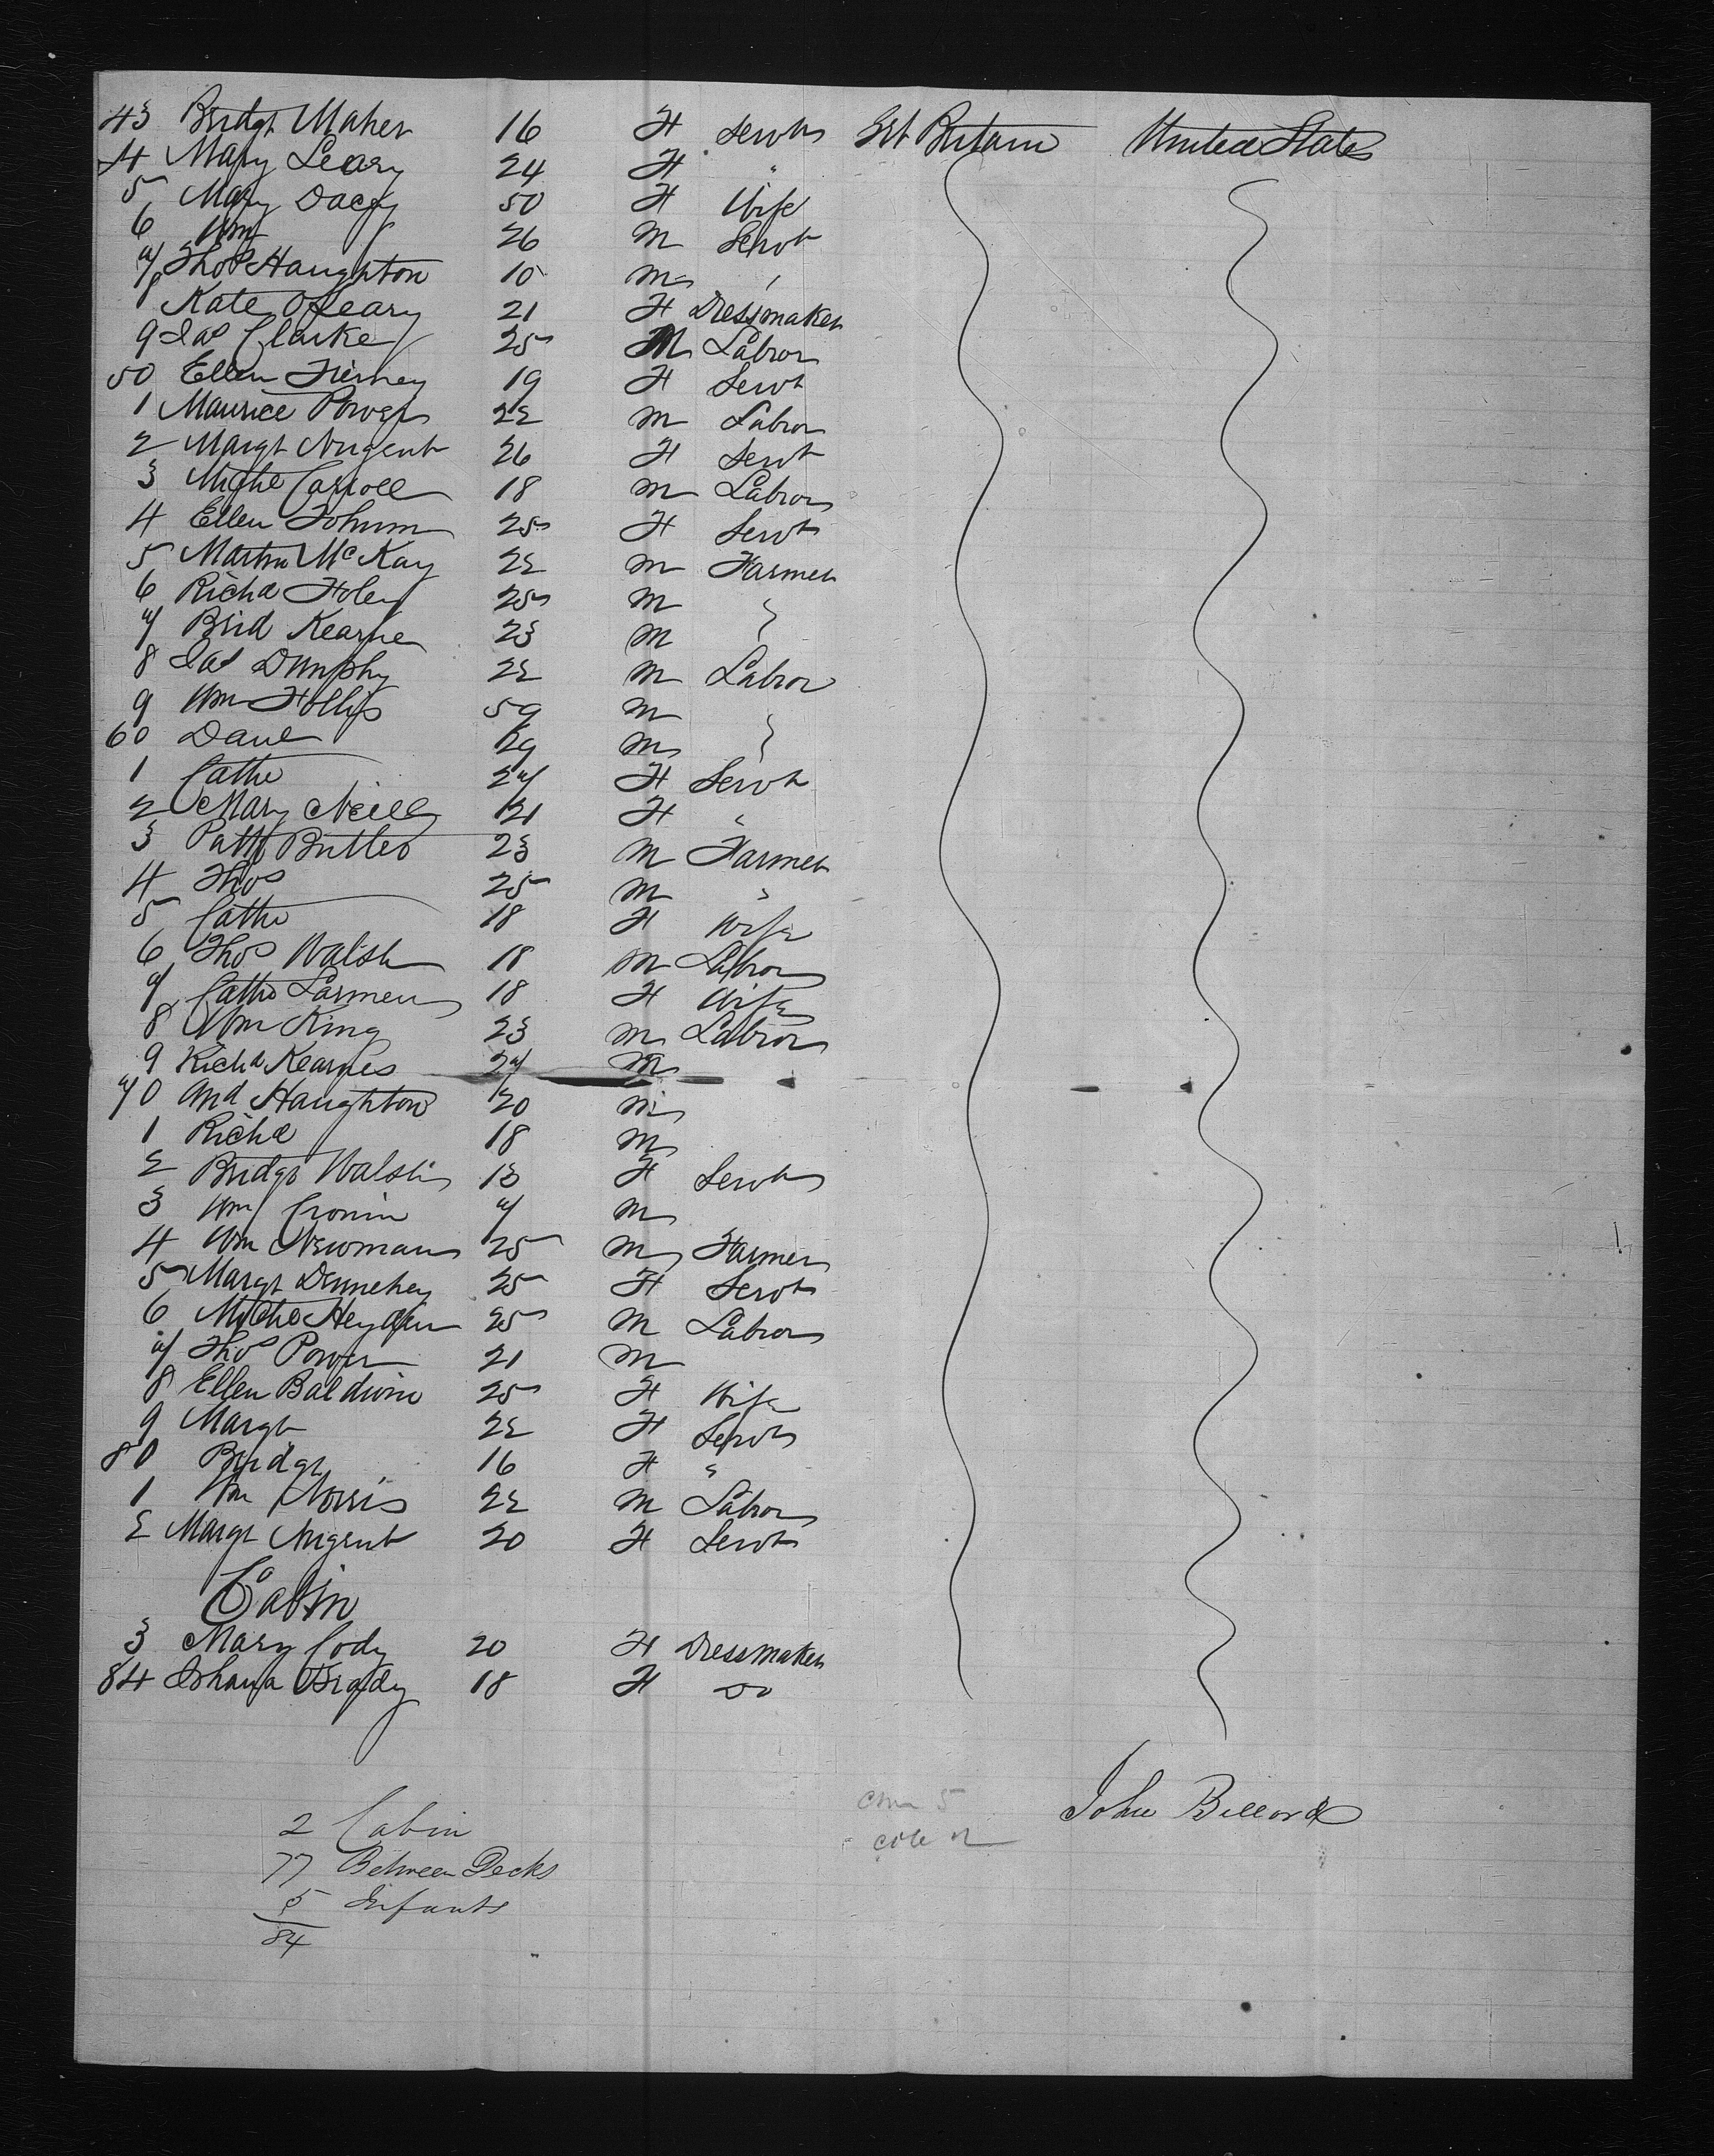 43 Bridgt Maher 16 F Servt Grt Britain United States
4 Mary Leary 24 F "
5 Mary Dacy 50 F Wife
6 Wm 26 M Servt
7 Thos Haughton 10 M "
8 Kate O'Leary 21 F Dressmaker
9 Jas Clarke 25 M Labror
50 Ellen Tierney 19 F Servt
1 Maurice Power 22 M Labror
2 Margt Nugent 26 F Servt
3 Michl Carroll 18 M Labror
4 Ellen 25 F Servt
5 Martin McKay 22 M Farmer
6 Richd Foley 25 M "
7 Brid Kearne 23 M
8 Jas Dunphy 22 M Labror
9 Wm Hollis 59 M
60 Danl 29 M "
1 Cathe 27 F Servt
2 Mary Neill 21 F "
3 Patk Butler 23 M Farmer
4 Thos 25 M "
5 Cathe 18 F Wife
6 Thos Walsh 18 M Labror
7 Cathe 18 F Wife
8 Wm King 23 M Labror
9 Richd Kearnes 27 M
70 And Haughton 20 M
1 Richd 18 M
2 Bridgt Walsh 13 F Servt
3 Wm Cronin 7 M
4 Wm Newman 25 M Farmer
5 Margt Dennehey 25 F Servt
6 Michl 25 M Labror
7 Thos Power 21 M
8 Ellen Baldwin 25 F Wife
9 Margt 22 F Servt
80 Bridgt 16 F "
1 Wm Norris 22 M Labror
2 Margt Nugent 20 F Servt
Cabin
3 Mary Cody 20 F Dressmaker
84 Johana Brady 18 F Do
John Billord
2 Cabin
77 Between Decks
5 Infants
84